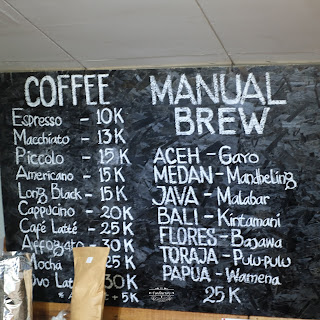 COFFEE
Espresso - 10K
Macchiato - 13K
Piccolo - 15K
Americano - 15K
Long Black - 15K
Cappucino - 20K
Café Latté - 25K
Affogato - 30K
Mocha 25K
Ovo Latt 30K
+ 5K
MANUAL
BREW
ACEH - Gayo
MEDAN - Mandheling
JAVA - Malabar
BALI - Kintamani
FLORES - Bajawa
TORAJA - Pulu-pulu
PAPUA - Wamena
25K